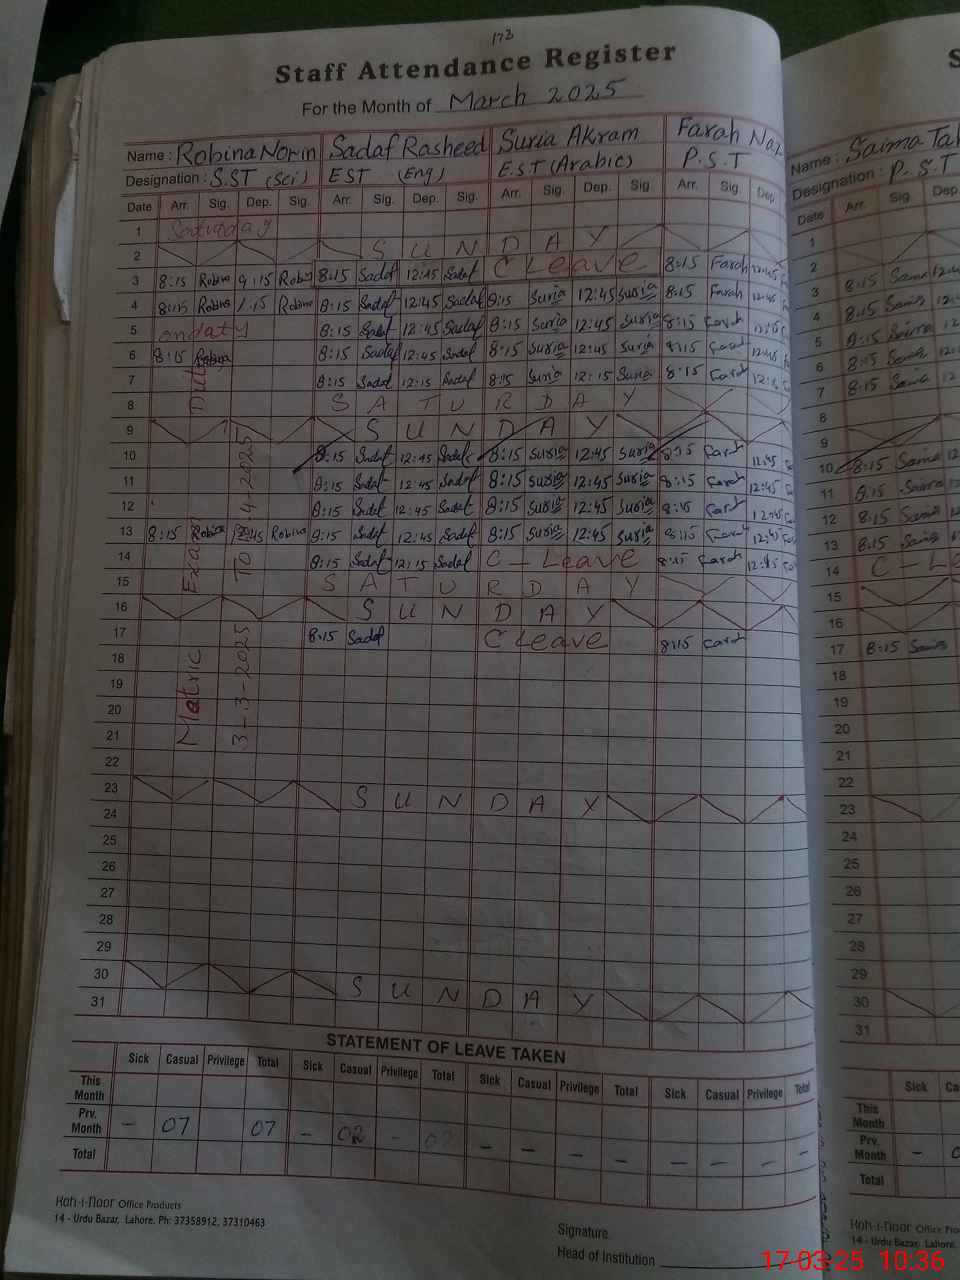 173
Staff Attendance Register S
For the Month of March 2025
Name : Robina Norin Sadaf Rasheed Suria Akram Farah Naz Name : Saima Ta
Designation : S.ST (Sci) EST (Eng) E.S.T (Arabic) P.S.T Designation : P.S.T
Date Arr. Sig. Dep. Sig. Arr. Sig. Dep. Sig. Arr. Sig. Dep. Sig. Arr. Sig. Dep Date Arr. Sig. Dep.
1 Saturday 1
2 S U N D A Y 2
3 8:15 Robina 9:15 Robi 8:15 Sadaf 12:45 Sadaf C Leave 8:15 Farah 12:45 3 8:15
4 8:15 Robina 1:15 Robina 8:15 Sadaf 12:45 Sadaf 8:15 Suria 12:45 Suria 8:15 Farah 12:45 4 8:15
5 8:15 Sadaf 12:45 Sadaf 8:15 Suria 12:45 Suria 8:15 Farah 5 8:15 Saima
6 8:15 Robina 8:15 Sadaf 12:45 Sadaf 8:15 Suria 12:45 Suria 8:15 Farah 12:45 6 8:15 Saima
7 8:15 Sadaf 12:15 Sadaf 8:15 Suria 12:15 Suria 8:15 Farah 7 8:15 Saima
8 S A T U R D A Y 8
9 S U N D A Y 9
10 8:15 Sadaf 12:45 Sadaf 8:15 Suria 12:45 Suria 8:15 Farah 12:45 10 8:15 Saima
11 8:15 Sadaf 12:45 Sadaf 8:15 Suria 12:45 Suria 8:15 Farah 12:45 11 8:15 Saima
12 8:15 Sadaf 12:45 Sadaf 8:15 Suria 12:45 Suria 8:15 Farah 12:45 12 8:15 Saima
13 8:15 Robina 12:45 Robina 8:15 Sadaf 12:45 Sadaf 8:15 Suria 12:45 Suria 8:15 Farah 12:45 13 8:15 Saima
14 8:15 Sadaf 12:15 Sadaf C - Leave 8:15 Farah 12:45 14 C - Le
15 S A T U R D A Y 15
16 S U N D A Y 16
17 8:15 Sadaf C Leave 8:15 Farah 17 8:15 Saima
18 18
19 19
20 20
21 21
22 22
23 S U N D A Y 23
24 24
25 25
26 26
27 27
28 28
29 29
30 S U N D A Y 30
31 31
Matric Exam Duty
3-3-2025 TO 4-2025
STATEMENT OF LEAVE TAKEN
Sick Casual Privilege Total Sick Casual Privilege Total Sick Casual Privilege Total Sick Casual Privilege Total Sick Ca
This Month This Month
Prv. Month – 07 07 – 02 – 02 – – – – – – – – Prv. Month –
Total Total
Koh-i-Noor Office Products Koh-i-Noor Office Pro
14 - Urdu Bazar, Lahore. Ph: 37358912, 37310463 14 - Urdu Bazar, Lahore.
Signature.
Head of Institution
17-03-25 10:36